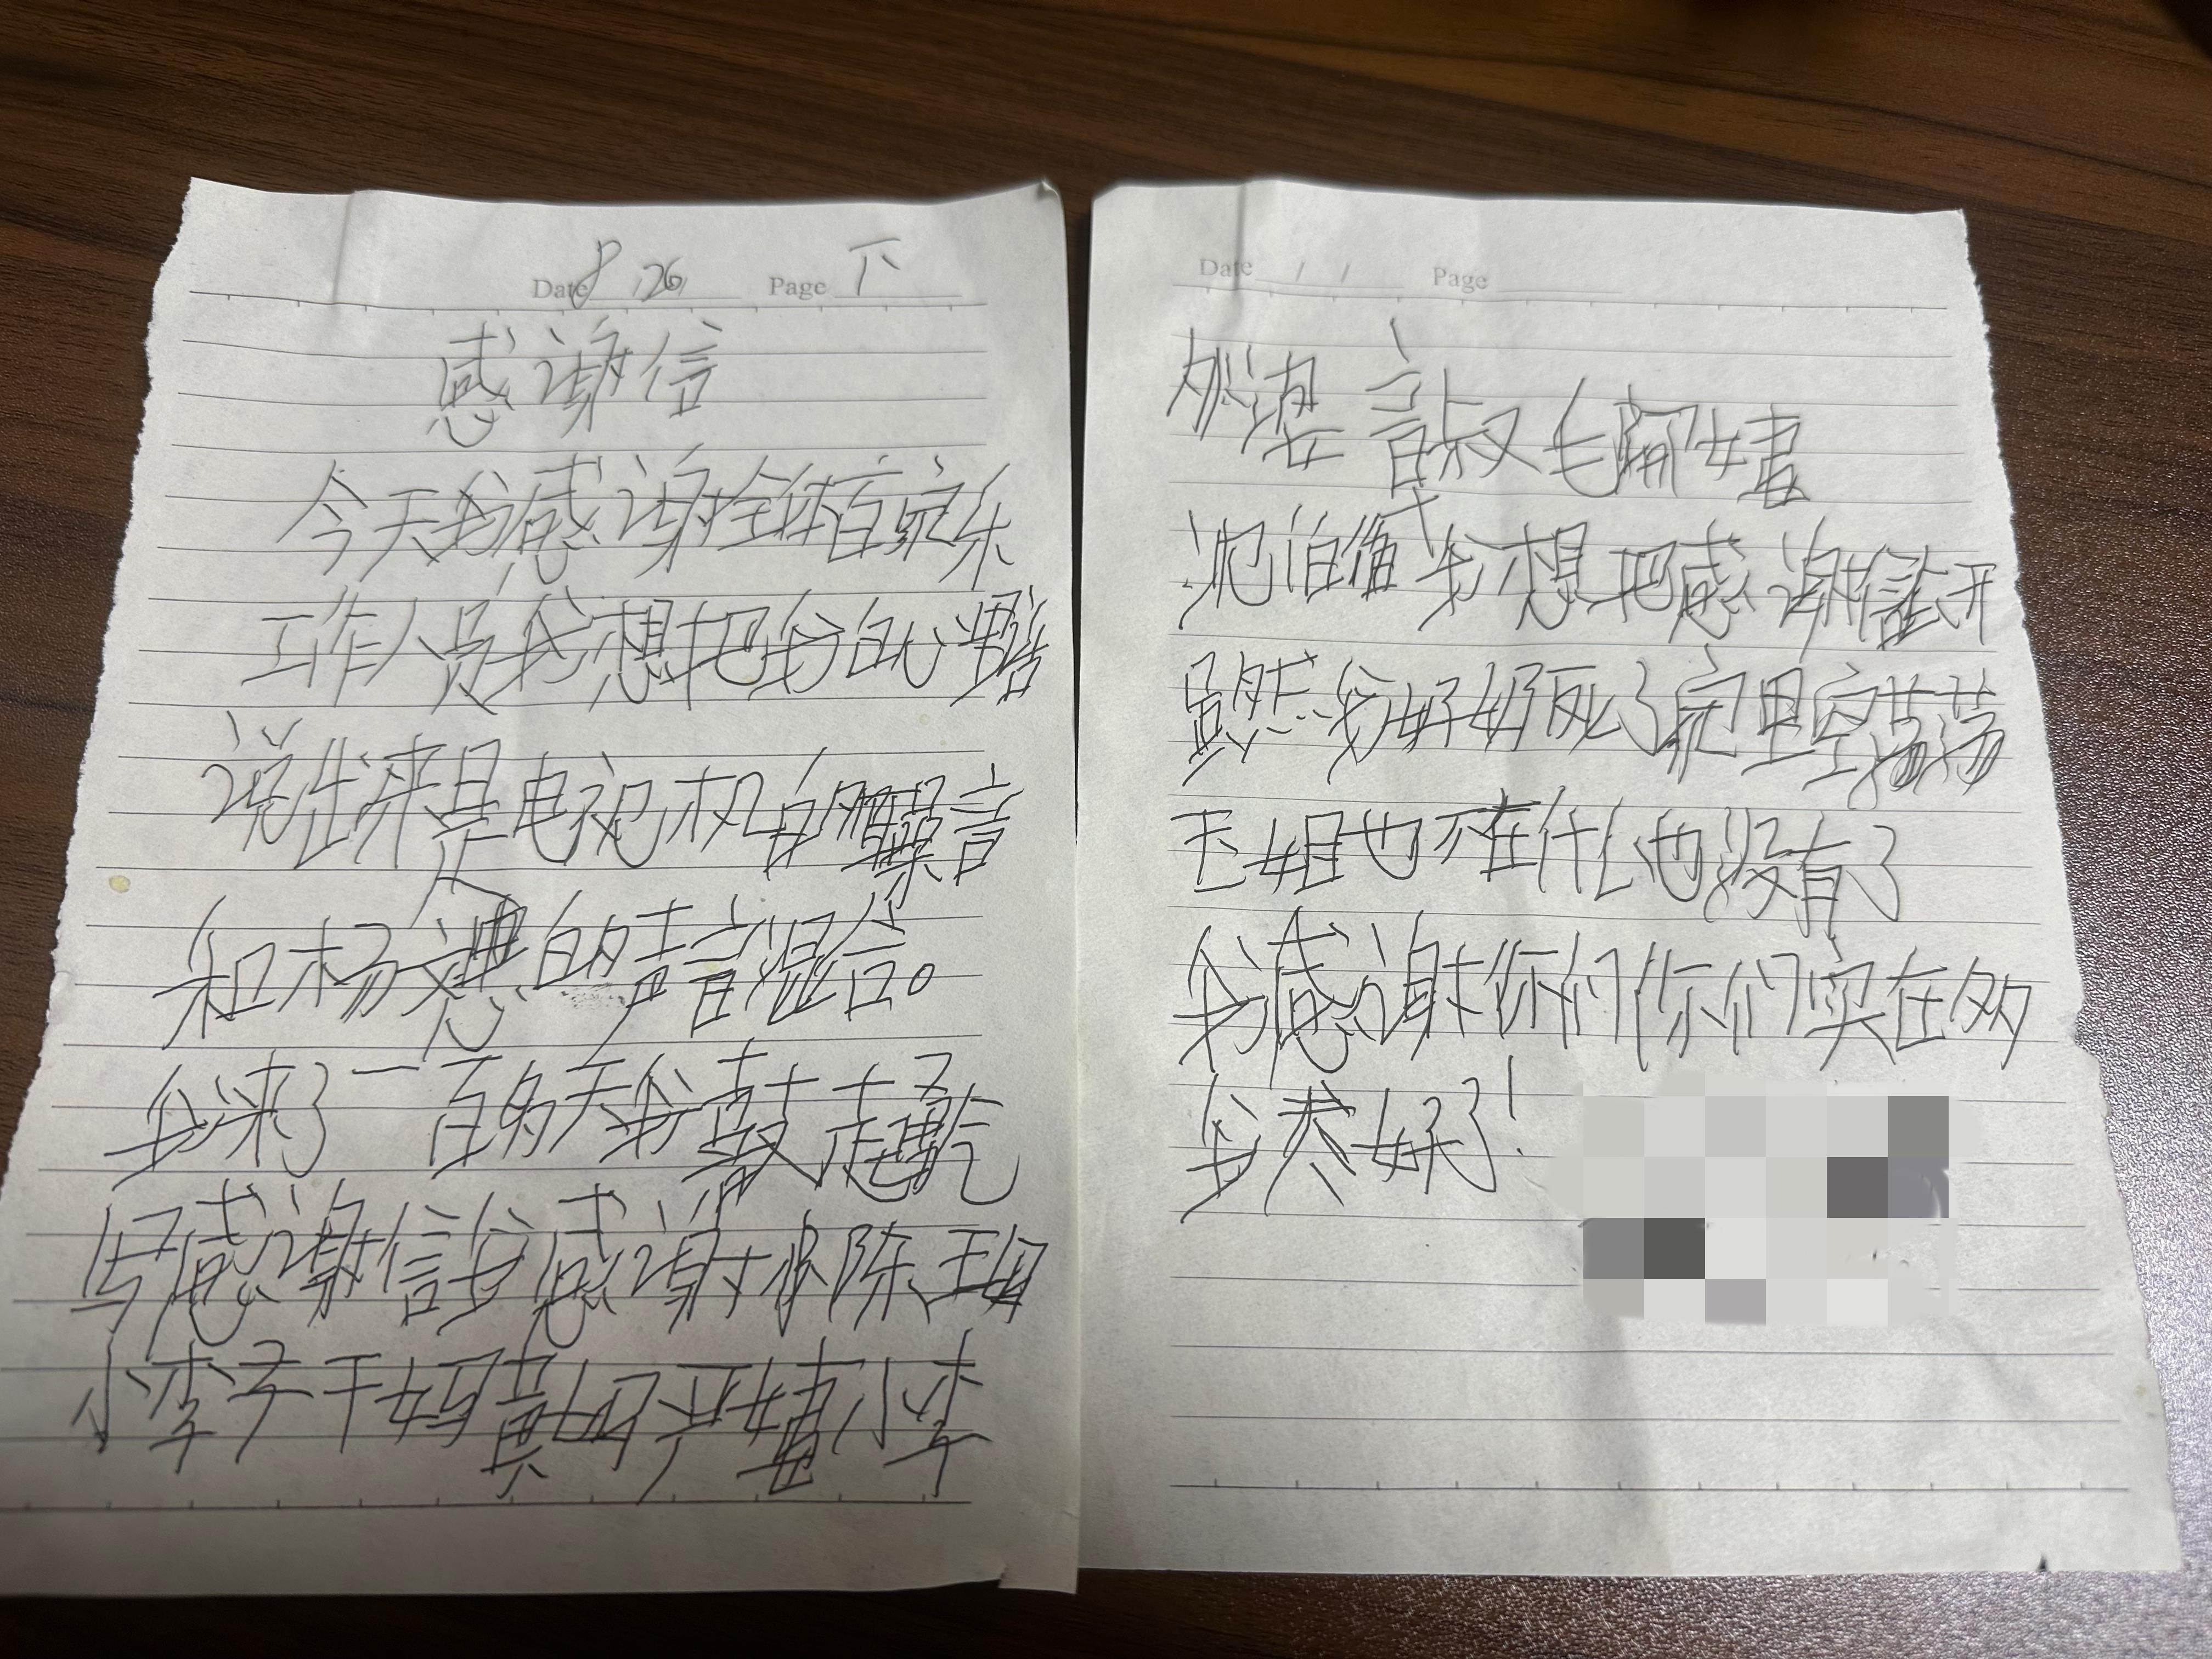 Date 8 / 26 / Page 下
感谢信
今天我感谢全体百家乐
工作人员我想把我的心里话
说出来是电视机的噪音
和杨文惠的声音混合。
我来了一百多天我鼓起勇气
写感谢信我感谢 陈 王姐
小李子干妈黄姐严婧小李
Date / / Page
毛 婧
我想把感谢信 开
虽然我奶奶死了家里空荡荡
王姐也不在什么也没有了
我感谢你们你们实在对
我太好了!